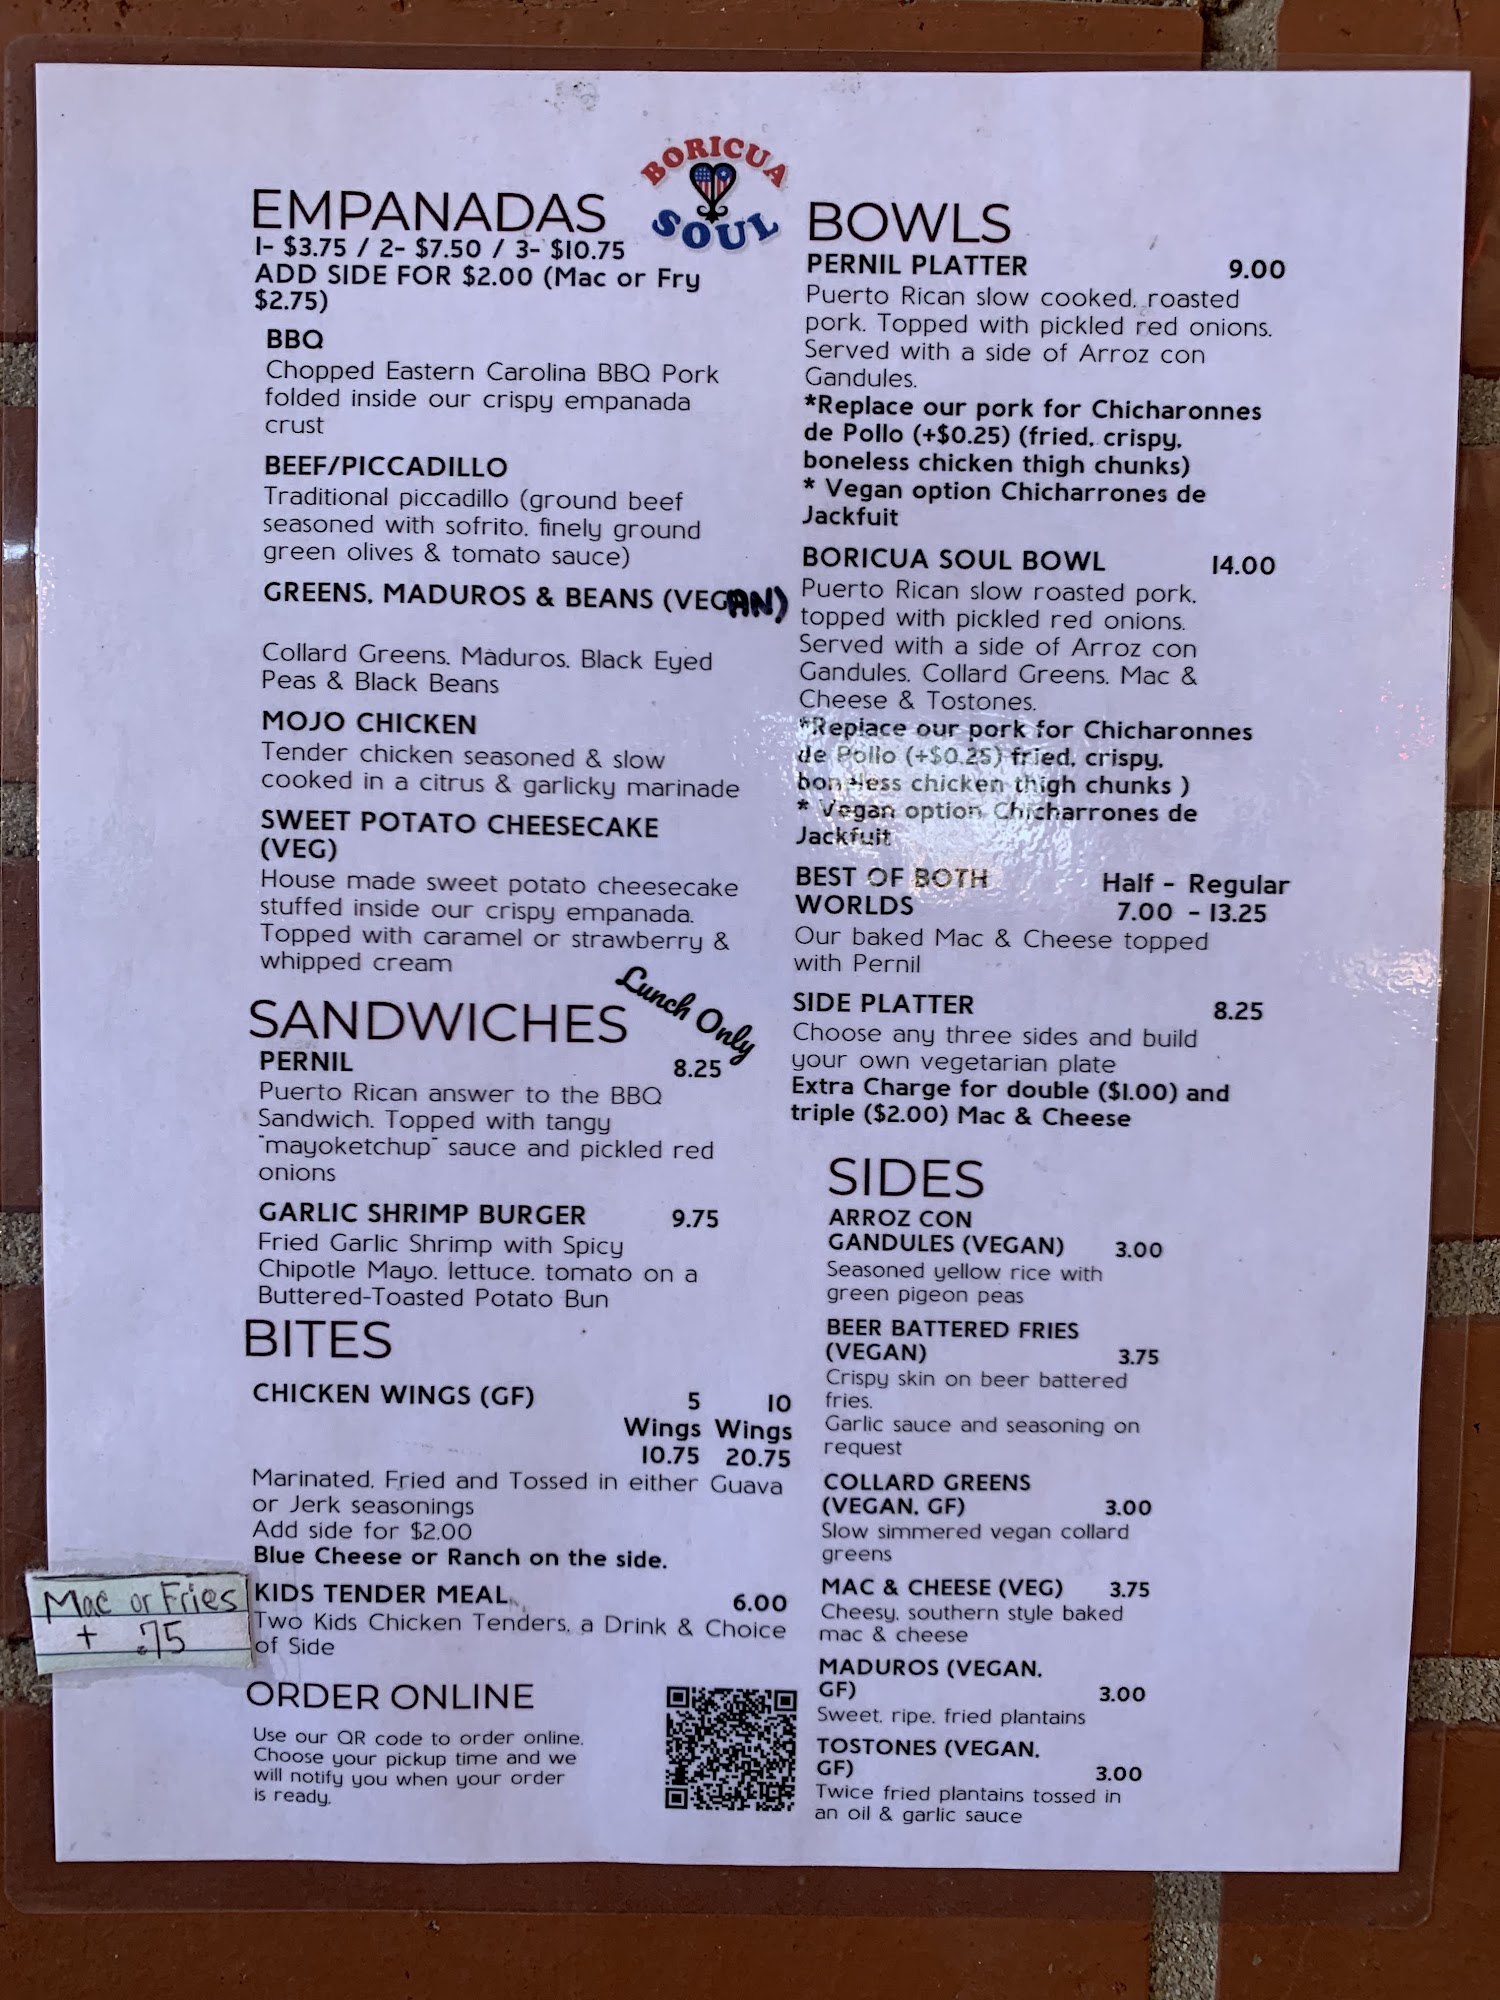 BORICUA
SOUL
EMPANADAS
1- $3.75 / 2- $7.50 / 3- $10.75
ADD SIDE FOR $2.00 (Mac or Fry
$2.75)
BBQ
Chopped Eastern Carolina BBQ Pork
folded inside our crispy empanada
crust
BEEF/PICCADILLO
Traditional piccadillo (ground beef
seasoned with sofrito, finely ground
green olives & tomato sauce)
GREENS, MADUROS & BEANS (VEGAN)
Collard Greens, Maduros, Black Eyed
Peas & Black Beans
MOJO CHICKEN
Tender chicken seasoned & slow
cooked in a citrus & garlicky marinade
SWEET POTATO CHEESECAKE
(VEG)
House made sweet potato cheesecake
stuffed inside our crispy empanada.
Topped with caramel or strawberry &
whipped cream
SANDWICHES
Lunch Only
PERNIL 8.25
Puerto Rican answer to the BBQ
Sandwich. Topped with tangy
"mayoketchup" sauce and pickled red
onions
GARLIC SHRIMP BURGER 9.75
Fried Garlic Shrimp with Spicy
Chipotle Mayo, lettuce, tomato on a
Buttered-Toasted Potato Bun
BITES
CHICKEN WINGS (GF) 5 10
Wings Wings
10.75 20.75
Marinated, Fried and Tossed in either Guava
or Jerk seasonings
Add side for $2.00
Blue Cheese or Ranch on the side.
KIDS TENDER MEAL 6.00
Two Kids Chicken Tenders, a Drink & Choice
of Side
Mac or Fries
+ .75
ORDER ONLINE
Use our QR code to order online.
Choose your pickup time and we
will notify you when your order
is ready.
BOWLS
PERNIL PLATTER 9.00
Puerto Rican slow cooked, roasted
pork. Topped with pickled red onions.
Served with a side of Arroz con
Gandules.
*Replace our pork for Chicharonnes
de Pollo (+$0.25) (fried, crispy,
boneless chicken thigh chunks)
* Vegan option Chicharrones de
Jackfuit
BORICUA SOUL BOWL 14.00
Puerto Rican slow roasted pork,
topped with pickled red onions.
Served with a side of Arroz con
Gandules, Collard Greens, Mac &
Cheese & Tostones.
*Replace our pork for Chicharonnes
de Pollo (+$0.25) fried, crispy,
boneless chicken thigh chunks )
* Vegan option Chicharrones de
Jackfuit
BEST OF BOTH Half - Regular
WORLDS 7.00 - 13.25
Our baked Mac & Cheese topped
with Pernil
SIDE PLATTER 8.25
Choose any three sides and build
your own vegetarian plate
Extra Charge for double ($1.00) and
triple ($2.00) Mac & Cheese
SIDES
ARROZ CON
GANDULES (VEGAN) 3.00
Seasoned yellow rice with
green pigeon peas
BEER BATTERED FRIES
(VEGAN) 3.75
Crispy skin on beer battered
fries.
Garlic sauce and seasoning on
request
COLLARD GREENS
(VEGAN, GF) 3.00
Slow simmered vegan collard
greens
MAC & CHEESE (VEG) 3.75
Cheesy, southern style baked
mac & cheese
MADUROS (VEGAN,
GF) 3.00
Sweet, ripe, fried plantains
TOSTONES (VEGAN,
GF) 3.00
Twice fried plantains tossed in
an oil & garlic sauce